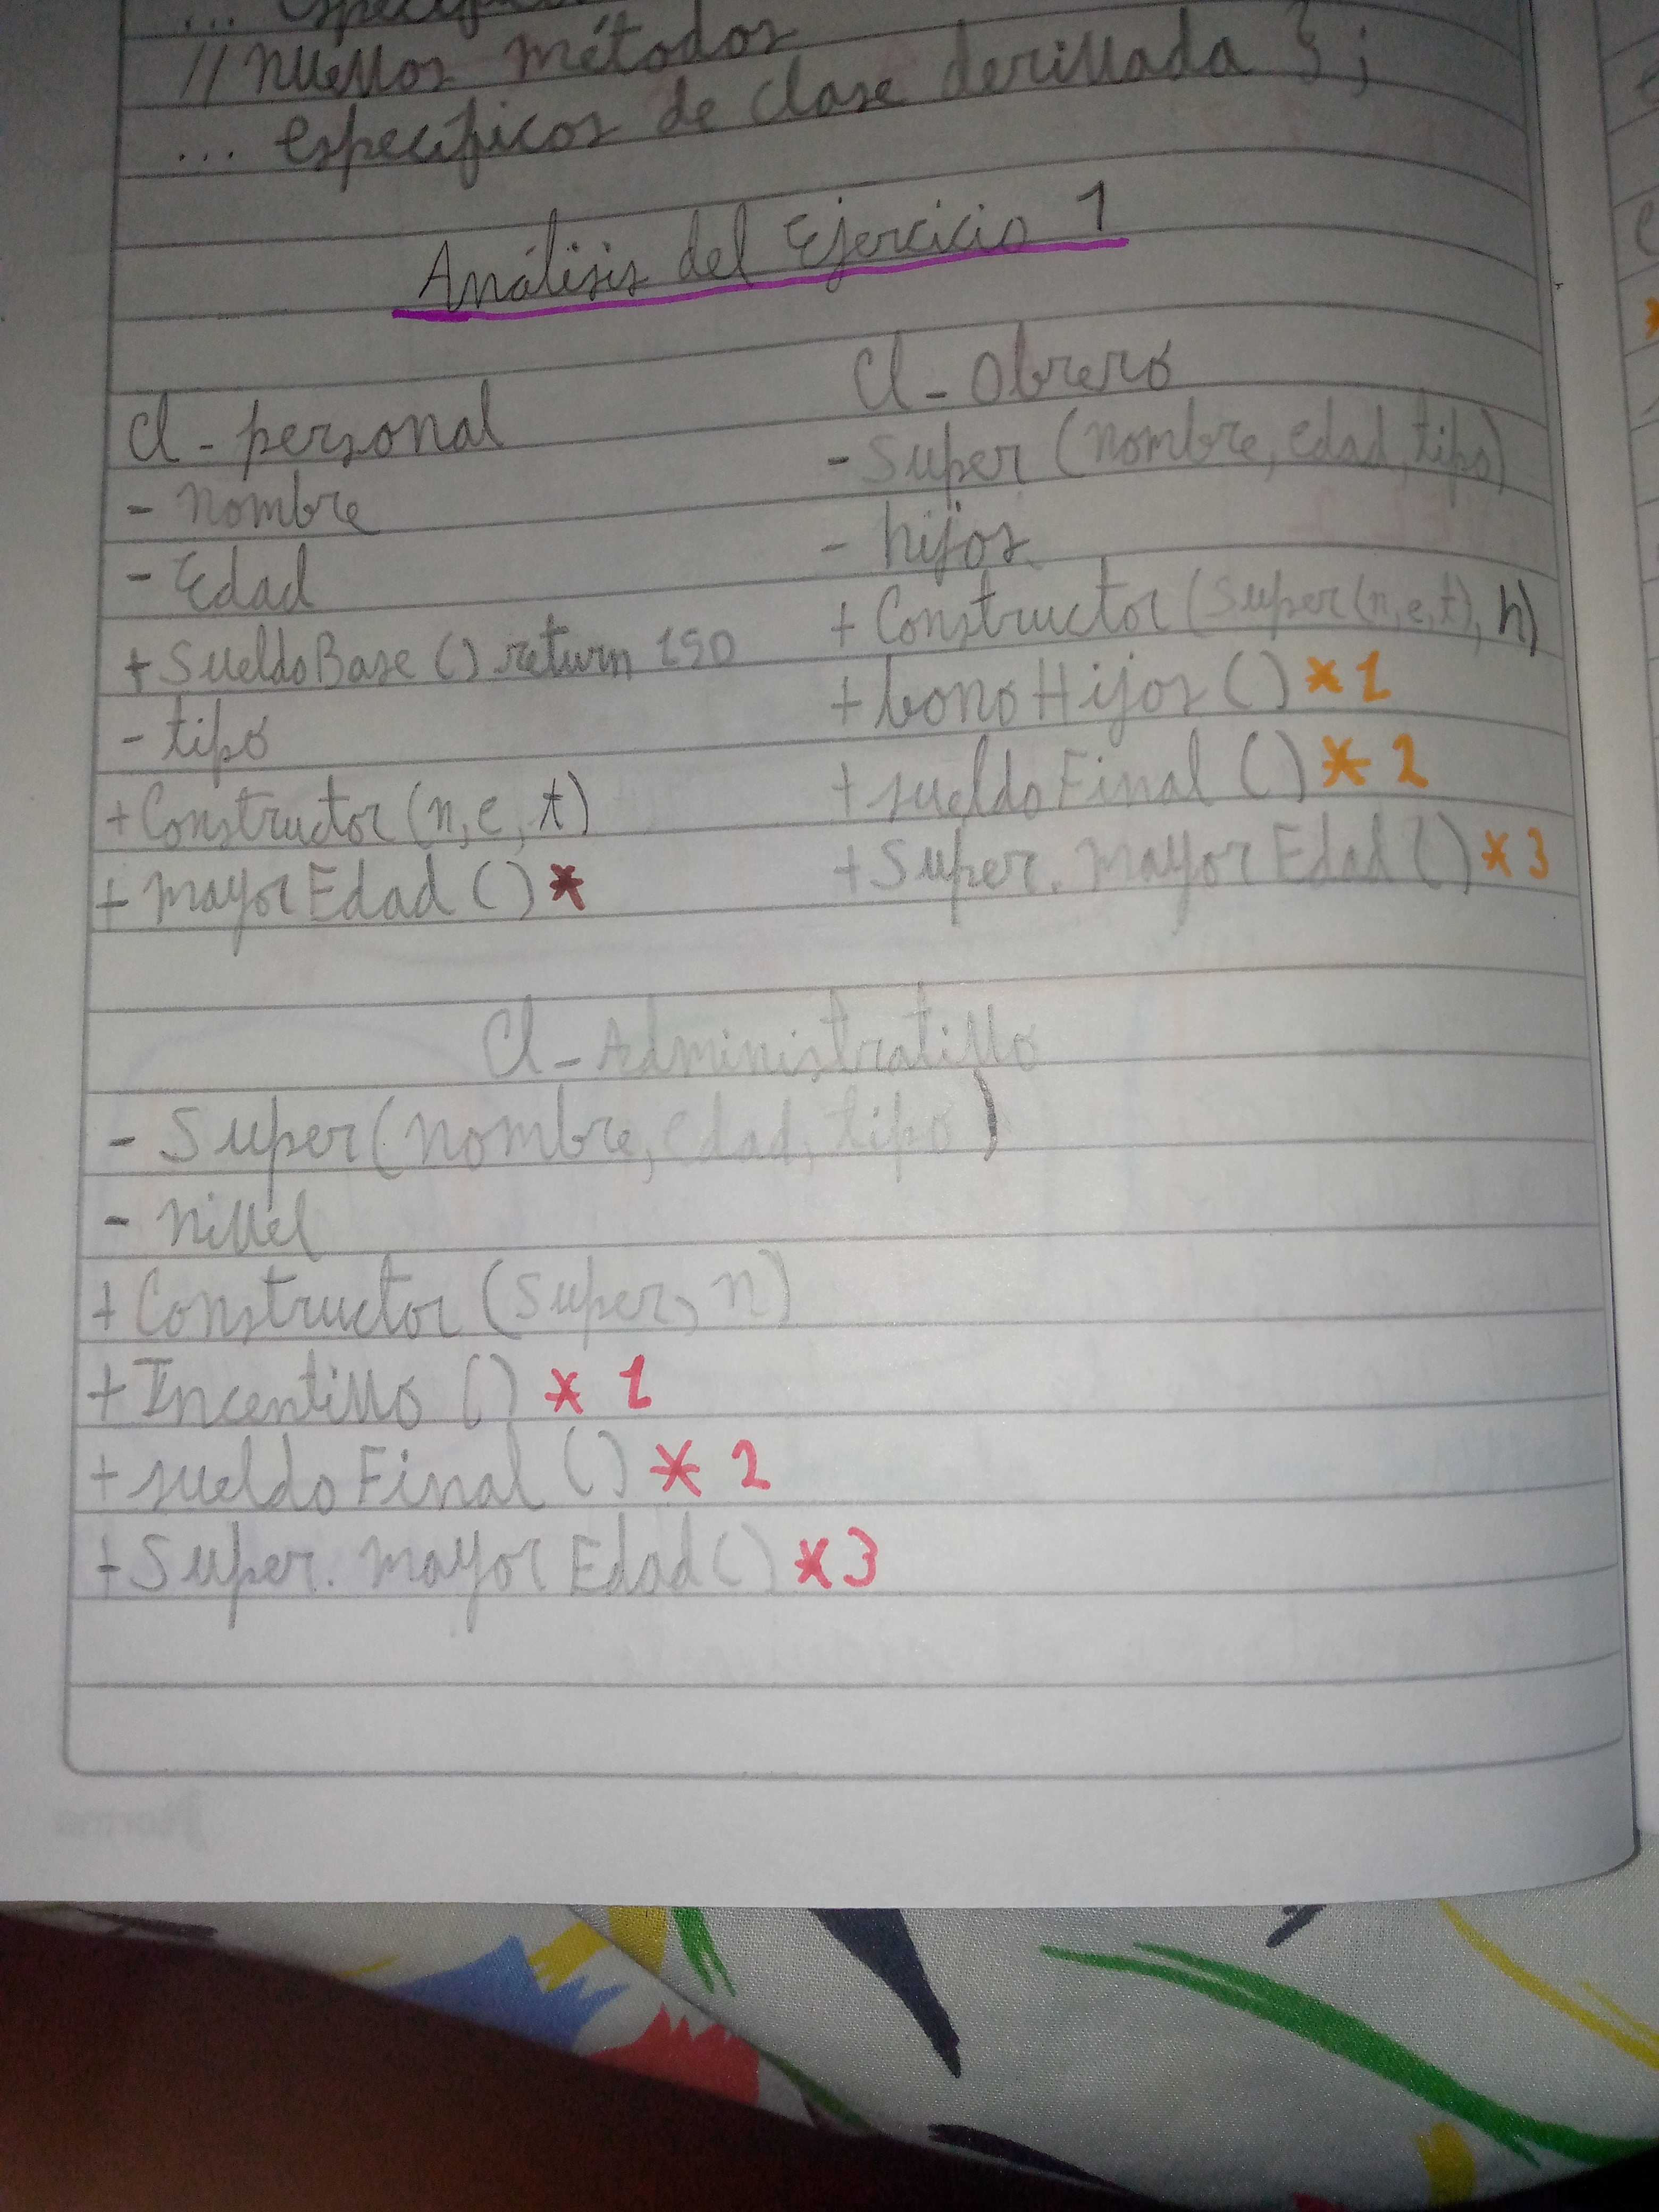 // nuevos métodos
... específicos de clase derivada } ;
Análisis del Ejercicio 1
Cl - personal
- nombre
- Edad
+ SueldoBase () return 150
- tipo
+ Constructor (n, e, t)
+ mayorEdad () *
Cl - Obrero
- Super (nombre, edad, tipo)
- hijos
+ Constructor (Super (n, e, t), h)
+ bonoHijos () * 1
+ sueldoFinal () * 2
+ Super. mayorEdad () * 3
Cl - Administrativo
- Super (nombre, edad, tipo)
- nivel
+ Constructor (Super, n)
+ Incentivo () * 1
+ sueldoFinal () * 2
+ Super. mayorEdad () * 3
Norma